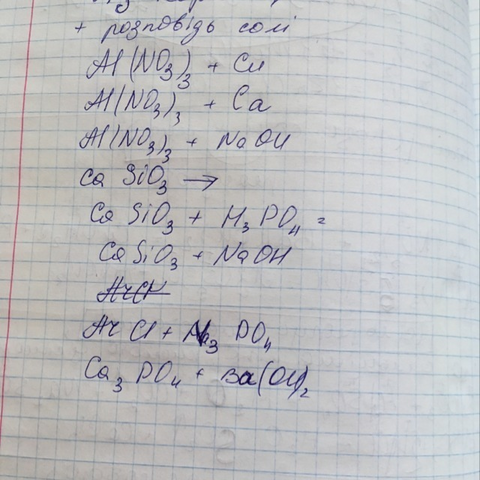 + розповідь солі
Al(NO3)3 + Cu
Al(NO3)3 + Ca
Al(NO3)3 + NaOH
Ca SiO3 →
Ca SiO3 + H3PO4 =
Ca SiO3 + NaOH
Cl + PO4
Ca3 PO4 + Ba(OH)2